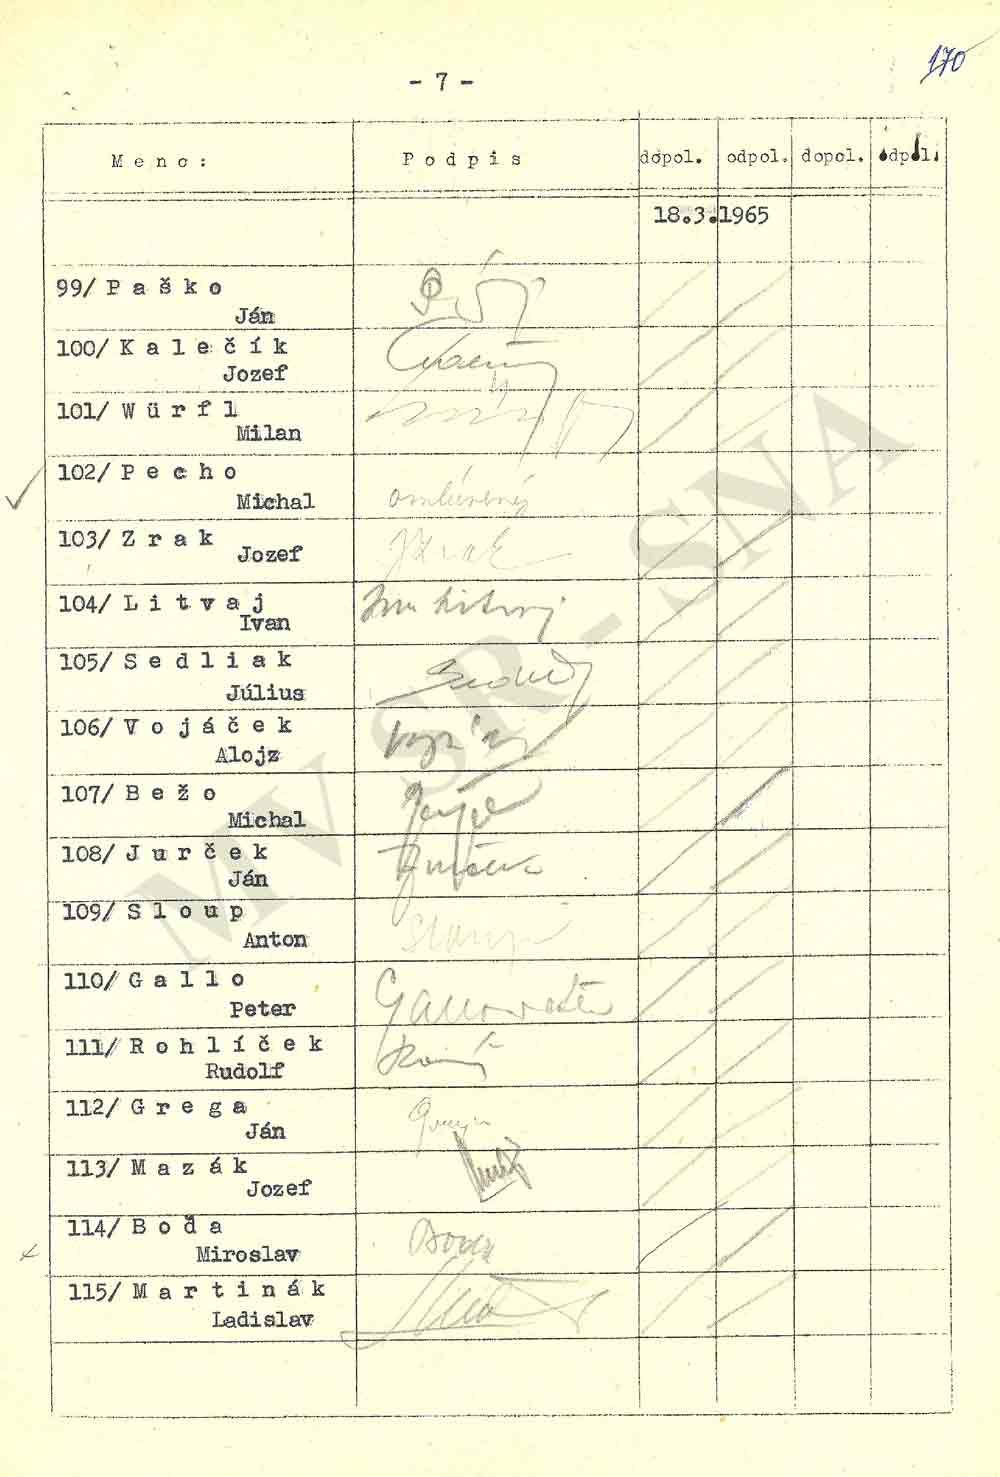 170
- 7 -
Meno: Podpis dopol. odpol. dopol. odpol.
18.3.1965
99/ Paško
Ján
100/ Kalečík
Jozef
101/ Würfl
Milan
102/ Pecho
Michal
ospravedlnený
103/ Zrak
Jozef
JZrak
104/ Litvaj
Ivan
Ivan Litvaj
105/ Sedliak
Július
106/ Vojáček
Alojz
107/ Bežo
Michal
108/ Jurček
Ján
Jurček
109/ Sloup
Anton
Sloup
110/ Gallo
Peter
111/ Rohlíček
Rudolf
112/ Grega
Ján
Grega
113/ Mazák
Jozef
114/ Boďa
Miroslav
Boďa
115/ Martinák
Ladislav
MV SR - SNA